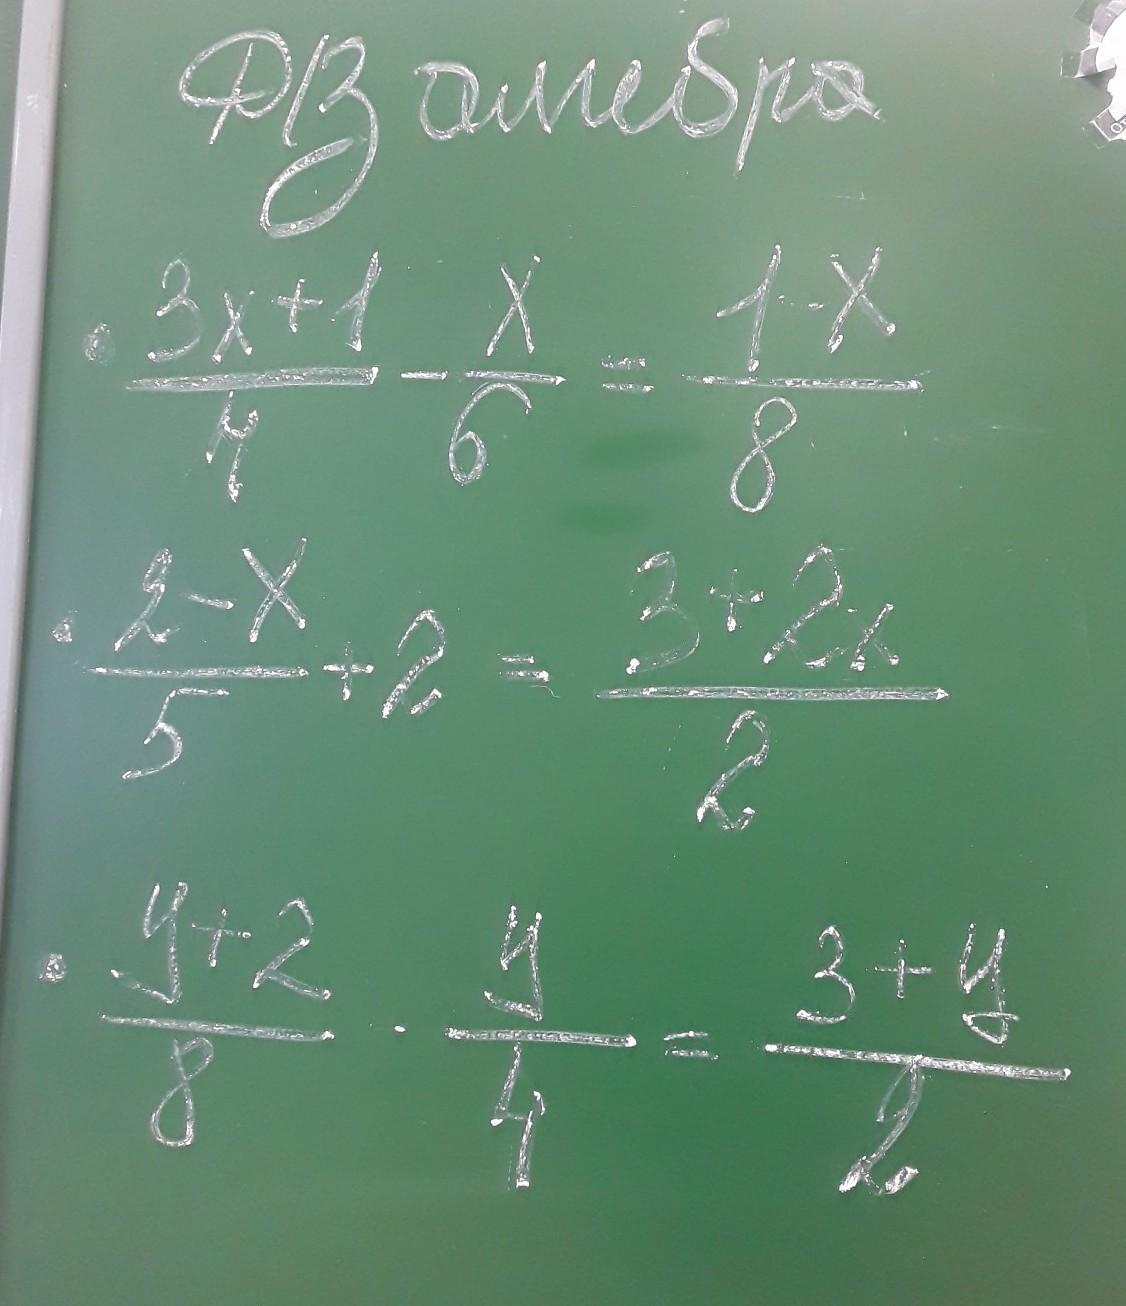 ДЗ алгебра
(3x+1)/4 - x/6 = (1-x)/8
(2-x)/5 + 2 = (3+2x)/2
(y+2)/8 · y/4 = (3+y)/2